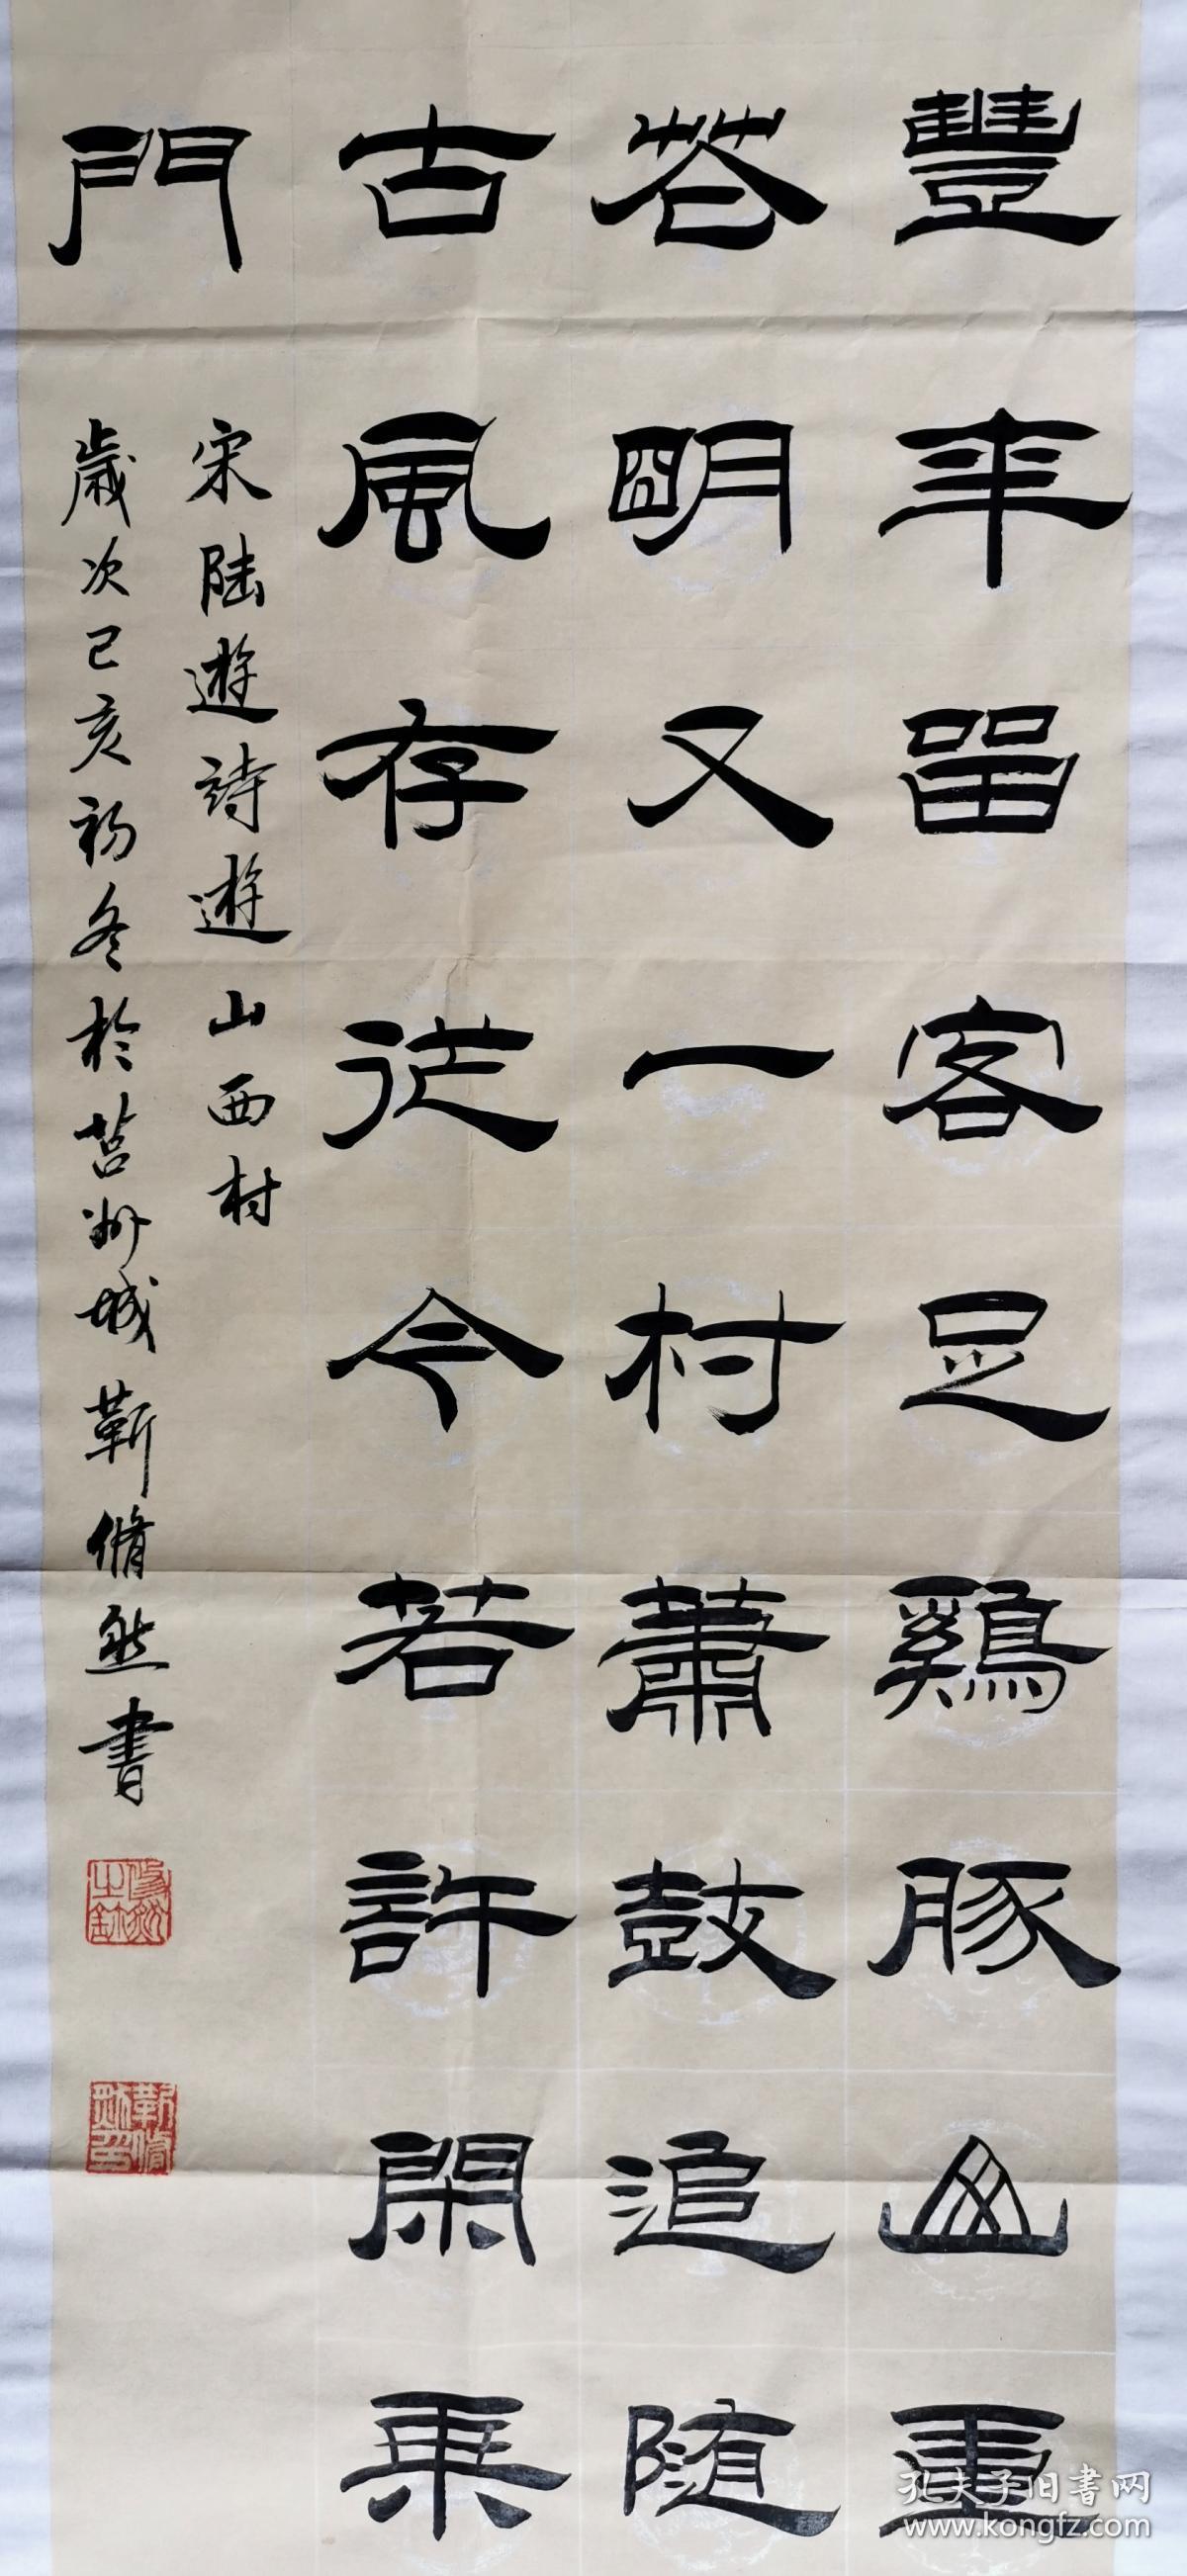 豐年留客足鷄豚山重
花明又一村蕭鼓追随
古風存從今若許閑乘
門
宋陆遊詩遊山西村
歲次己亥初冬於莒州城靳脩然書
孔夫子旧书网
www.kongfz.com